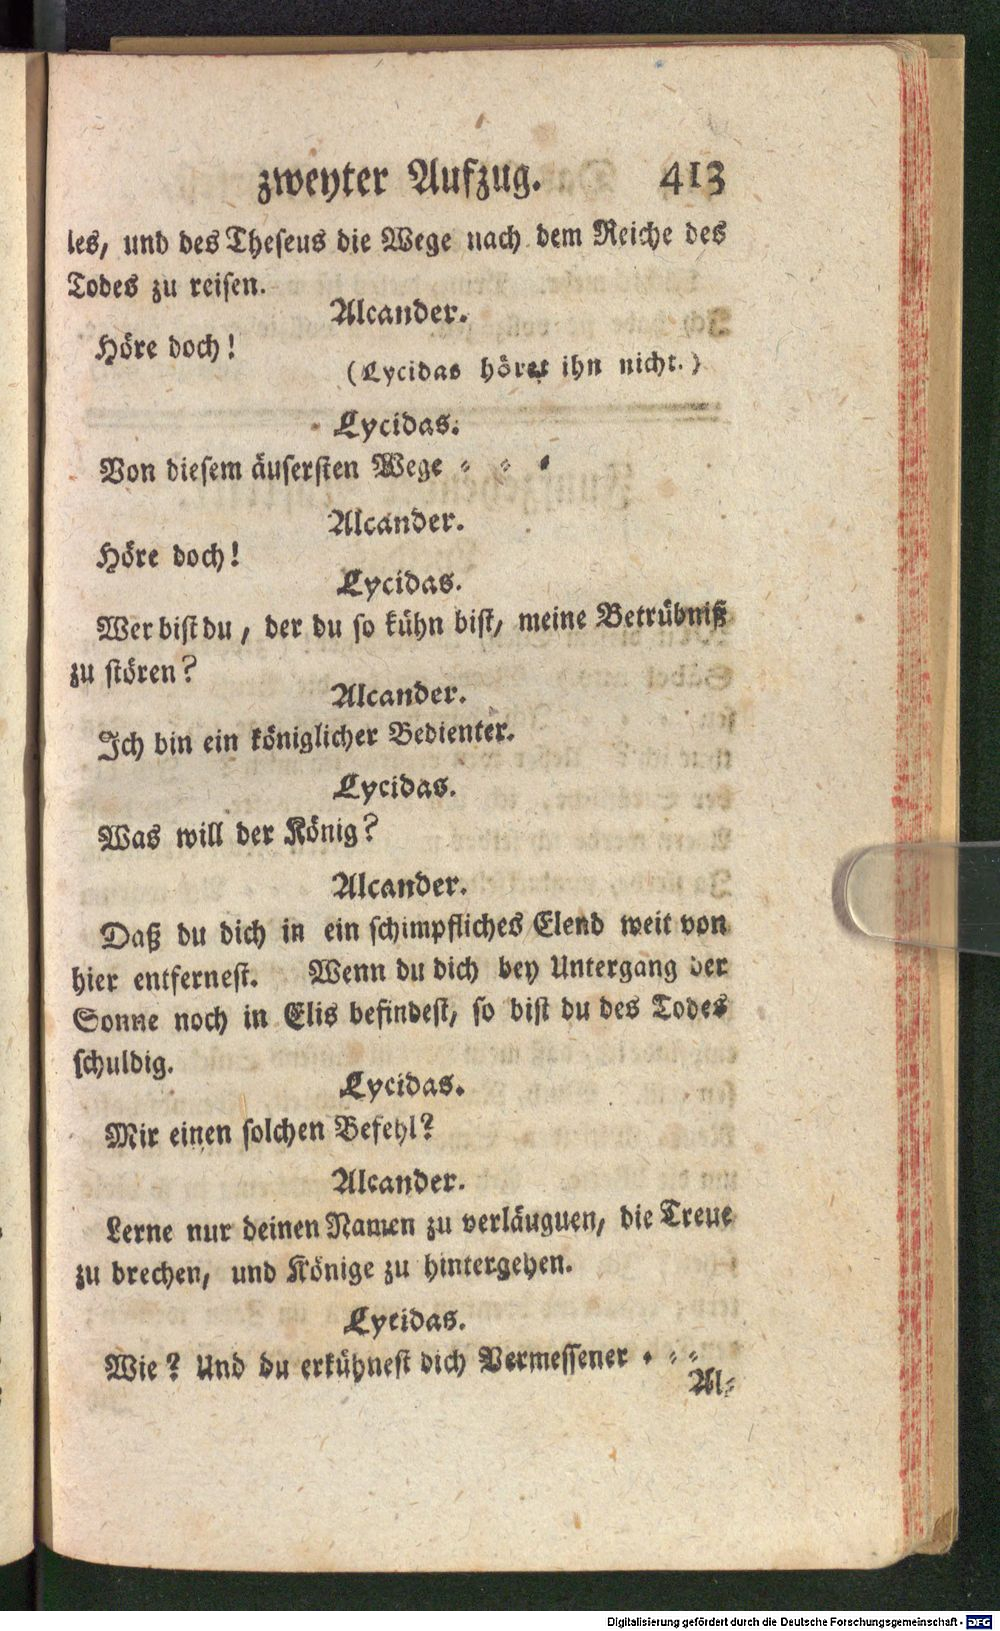 zweyter Aufzug. 413
les, und des Theseus die Wege nach dem Reiche des
Todes zu reisen.
Alcander.
Höre doch!
(Lycidas höret ihn nicht.)
Lycidas.
Von diesem äusersten Wege = = =
Alcander.
Höre doch!
Lycidas.
Wer bist du, der du so kühn bist, meine Betrübniß
zu stören?
Alcander.
Ich bin ein königlicher Bedienter.
Lycidas.
Was will der König?
Alcander.
Daß du dich in ein schimpfliches Elend weit von
hier entfernest. Wenn du dich bey Untergang der
Sonne noch in Elis befindest, so bist du des Todes
schuldig.
Lycidas.
Mir einen solchen Befehl?
Alcander.
Lerne nur deinen Namen zu verläuguen, die Treue
zu brechen, und Könige zu hintergehen.
Lycidas.
Wie? Und du erkühnest dich Vermessener = = =
Al=
Digitalisierung gefördert durch die Deutsche Forschungsgemeinschaft - DFG